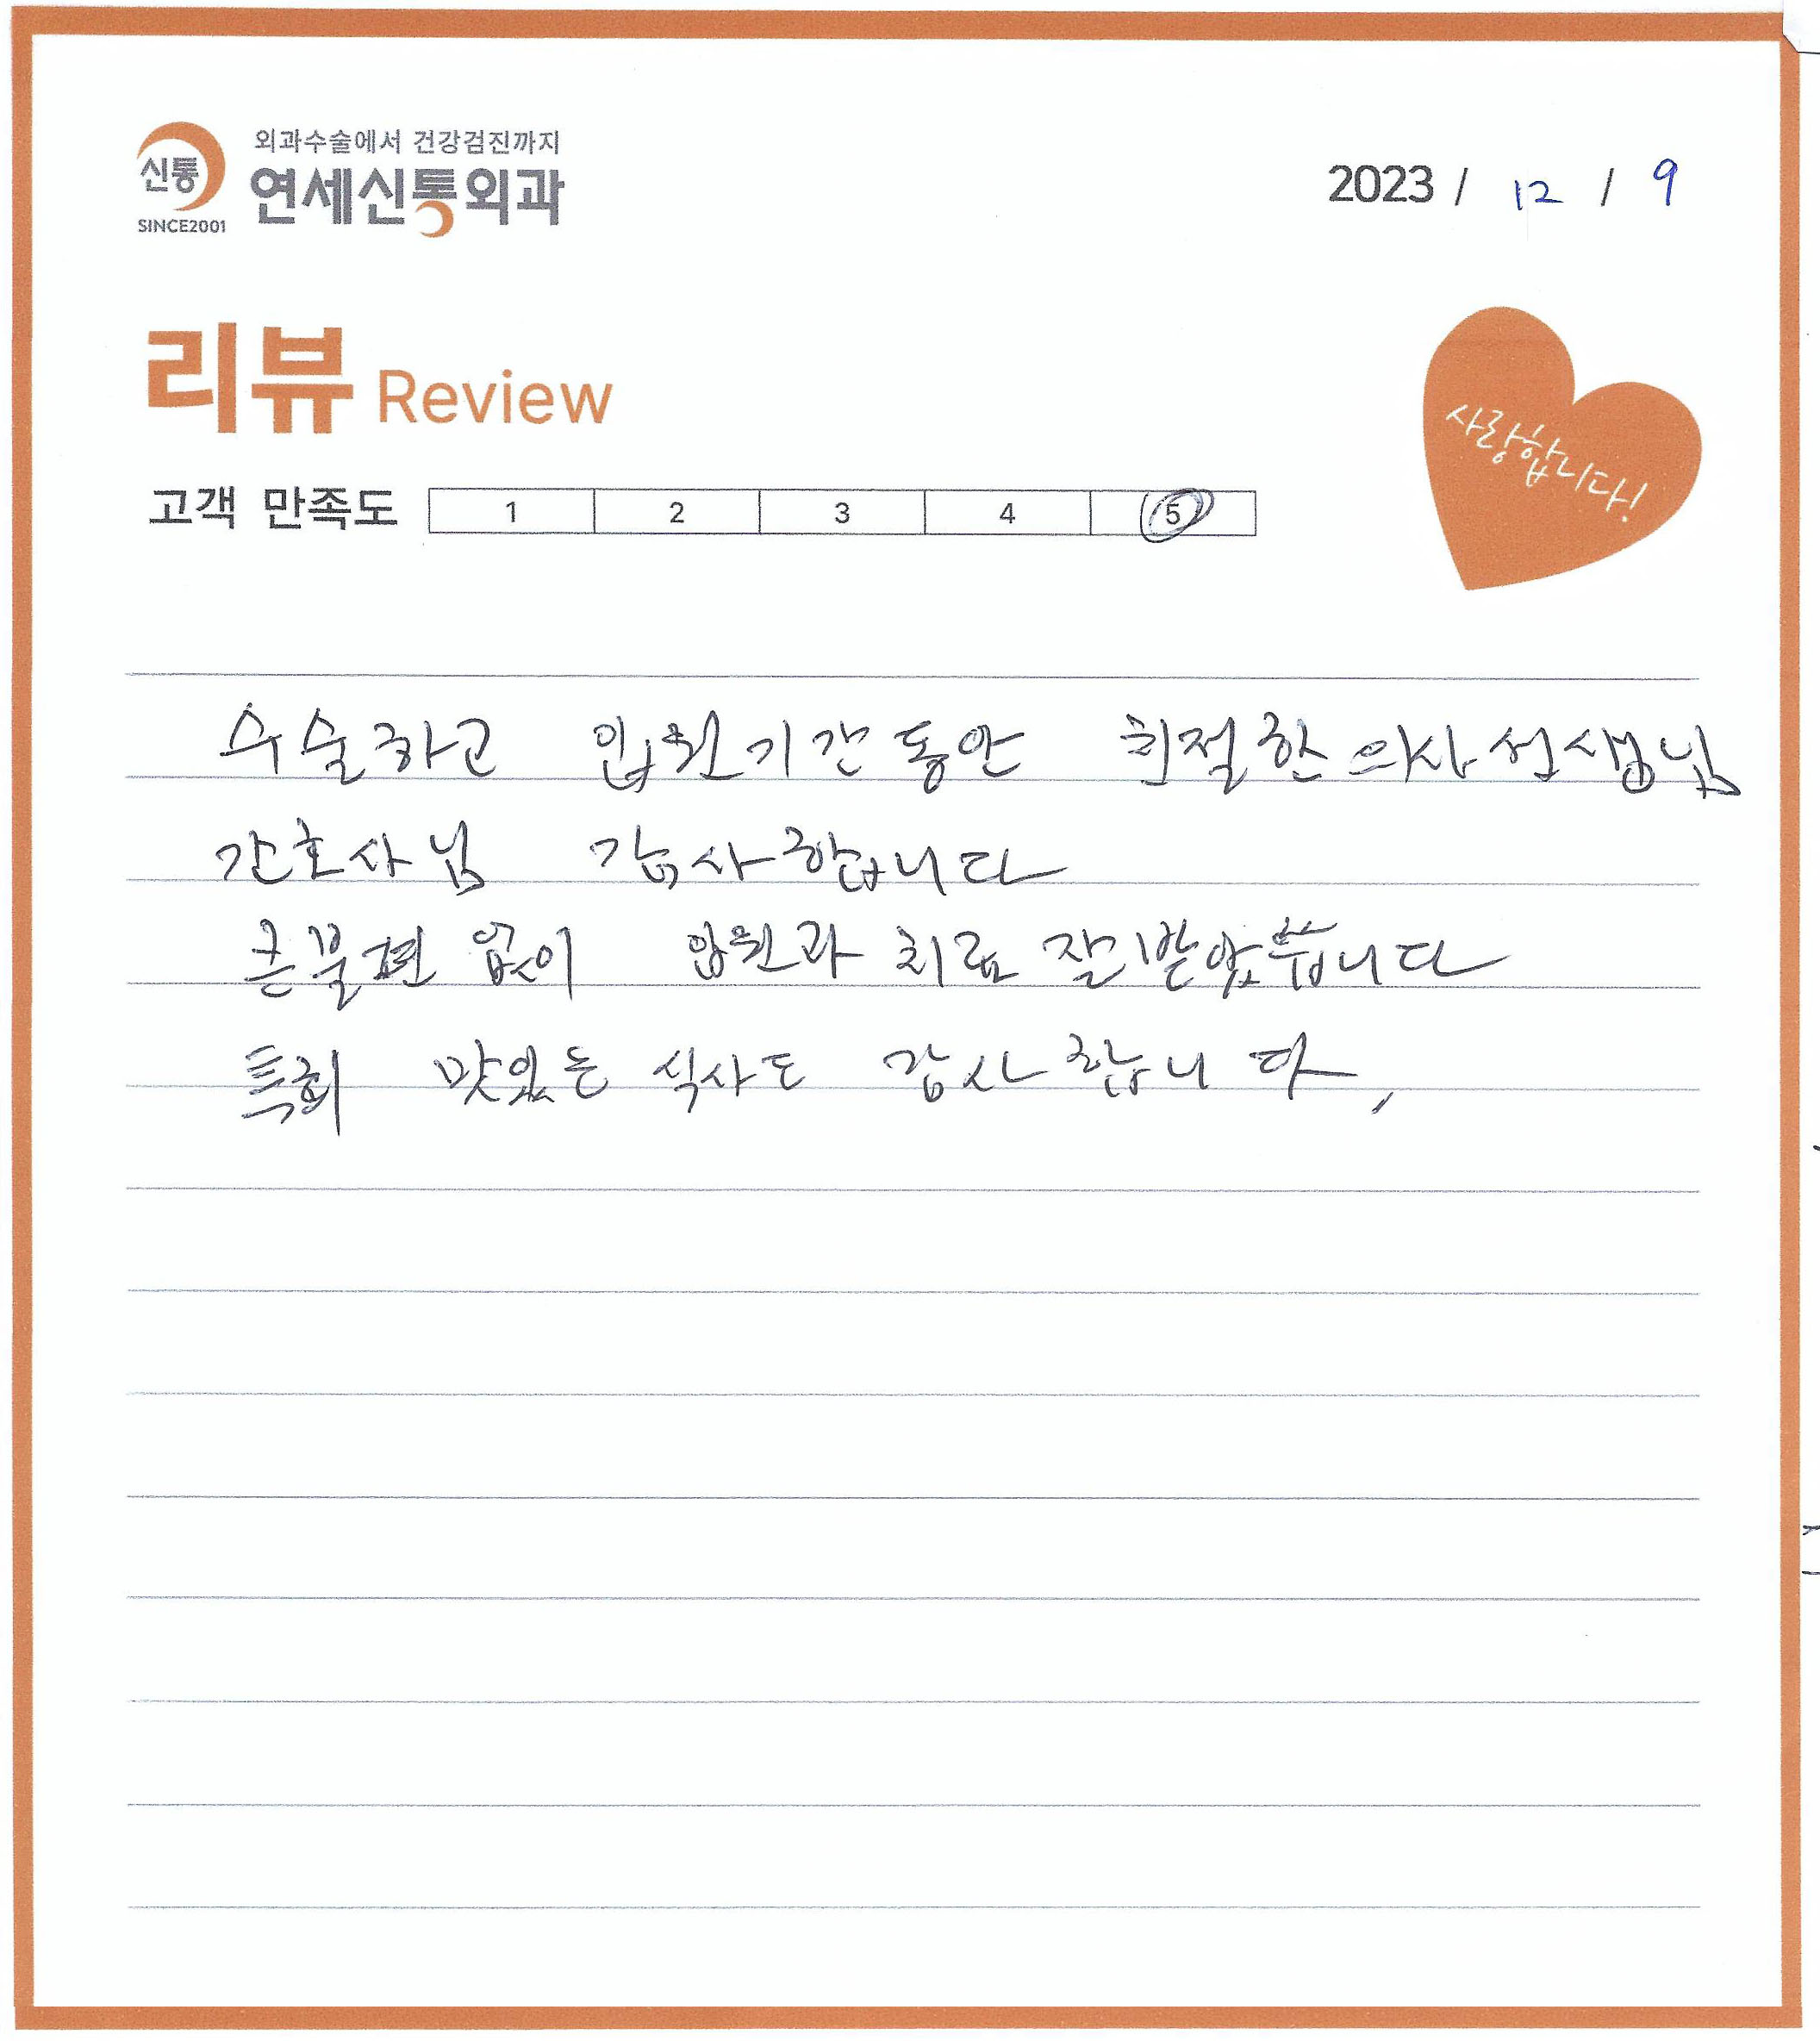 외과수술에서 건강검진까지
신통 연세신통외과
SINCE2001
2023 / 12 / 9
리뷰 Review
사랑합니다!
고객 만족도 1 2 3 4 5
수술하고 입원기간동안 친절한 의사선생님
간호사님 감사합니다
큰불편 없이 입원과 치료 잘받았습니다
특히 맛있는 식사도 감사합니다,